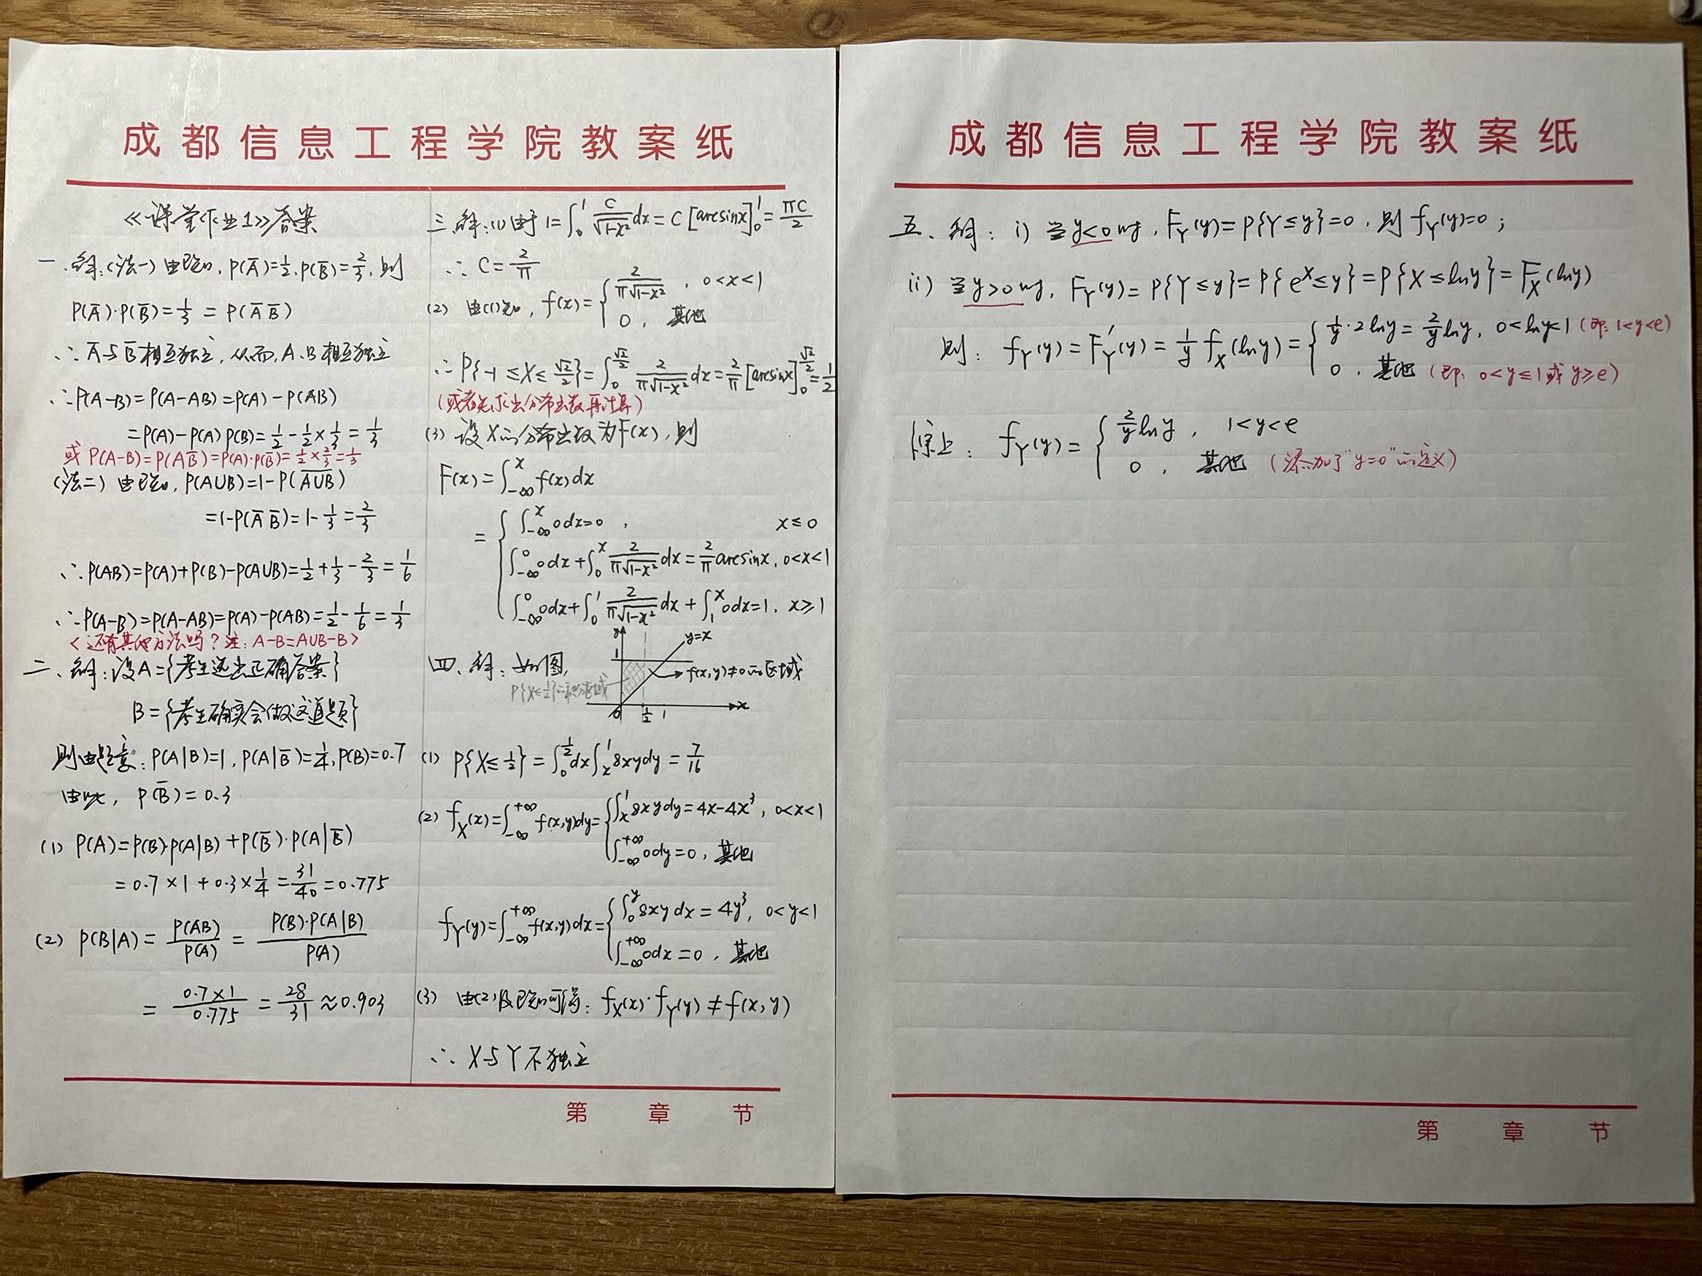 成都信息工程学院教案纸
《课堂作业1》答案
一、解:(法一)由已知,P(A̅)=1/2,P(B̅)=2/3,则
P(A̅)·P(B̅)=1/3=P(A̅ B̅)
∴A̅与B̅相互独立,从而,A、B相互独立
∴P(A-B)=P(A-AB)=P(A)-P(AB)
=P(A)-P(A)P(B)=1/2-1/2×1/3=1/3
或P(A-B)=P(AB̅)=P(A)·P(B̅)=1/2×2/3=1/3
(法二)由已知,P(A∪B)=1-P(A̅∪̅B̅)
=1-P(A̅ B̅)=1-1/3=2/3
∴P(AB)=P(A)+P(B)-P(A∪B)=1/2+1/3-2/3=1/6
∴P(A-B)=P(A-AB)=P(A)-P(AB)=1/2-1/6=1/3
<还有其他方法吗?注:A-B=A∪B-B>
二、解:设A={考生选出正确答案}
B={考生确实会做这道题}
则由题意:P(A|B)=1,P(A|B̅)=1/4,P(B)=0.7
由此,P(B̅)=0.3
(1) P(A)=P(B)·P(A|B)+P(B̅)·P(A|B̅)
=0.7×1+0.3×1/4=31/40=0.775
(2) P(B|A)=P(AB)/P(A)=P(B)·P(A|B)/P(A)
=0.7×1/0.775=28/31≈0.903
三、解:(1)由于1=∫₀¹ C/√(1-x²) dx=C[arcsinx]₀¹=πC/2
∴C=2/π
(2) 由(1)知,f(x)={2/(π√(1-x²)),0<x<1
0,其他
∴P{-1≤X≤√2/2}=∫₀^(√2/2) 2/(π√(1-x²)) dx=2/π[arcsinx]₀^(√2/2)=1/2
(或者先求出分布函数再计算)
(3) 设X的分布函数为F(x),则
F(x)=∫_{-∞}^x f(x)dx
={∫_{-∞}^x 0dx=0,x≤0
∫_{-∞}^0 0dx+∫₀^x 2/(π√(1-x²)) dx=2/π arcsinx,0<x<1
∫_{-∞}^0 0dx+∫₀¹ 2/(π√(1-x²)) dx+∫₁^x 0dx=1,x≥1
四、解:如图,
P{X≤1/2}的积分区域
y
y=x
1
f(x,y)≠0的区域
0 1/2 1 x
(1) P{X≤1/2}=∫₀^(1/2)dx∫_x^1 8xydy=7/16
(2) f_X(x)=∫_{-∞}^{+∞} f(x,y)dy={∫_x^1 8xydy=4x-4x³,0<x<1
∫_{-∞}^{+∞} 0dy=0,其他
f_Y(y)=∫_{-∞}^{+∞} f(x,y)dx={∫₀^y 8xydx=4y³,0<y<1
∫_{-∞}^{+∞} 0dx=0,其他
(3) 由(2)及已知可得:f_X(x)·f_Y(y)≠f(x,y)
∴X与Y不独立
第 章 节
成都信息工程学院教案纸
五、解:i) 当y<0时,F_Y(y)=P{Y≤y}=0,则f_Y(y)=0;
ii) 当y>0时,F_Y(y)=P{Y≤y}=P{e^X≤y}=P{X≤lny}=F_X(lny)
则:f_Y(y)=F_Y'(y)=1/y f_X(lny)={1/y·2lny=2/y lny,0<lny<1(即:1<y<e)
0,其他(即:0<y≤1或y≥e)
综上:f_Y(y)={2/y lny,1<y<e
0,其他(添加了"y=0"的定义)
第 章 节